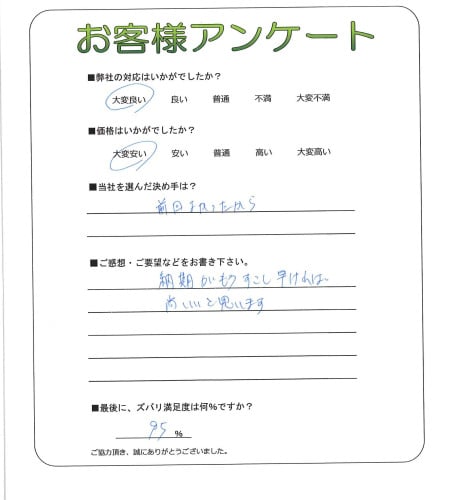 お客様アンケート
■弊社の対応はいかがでしたか?
大変良い 良い 普通 不満 大変不満
■価格はいかがでしたか?
大変安い 安い 普通 高い 大変高い
■当社を選んだ決め手は?
前回よかったから
■ご感想・ご要望などをお書き下さい。
納期がもうすこし早ければ
尚いいと思います
■最後に、ズバリ満足度は何%ですか?
95 %
ご協力頂き、誠にありがとうございました。